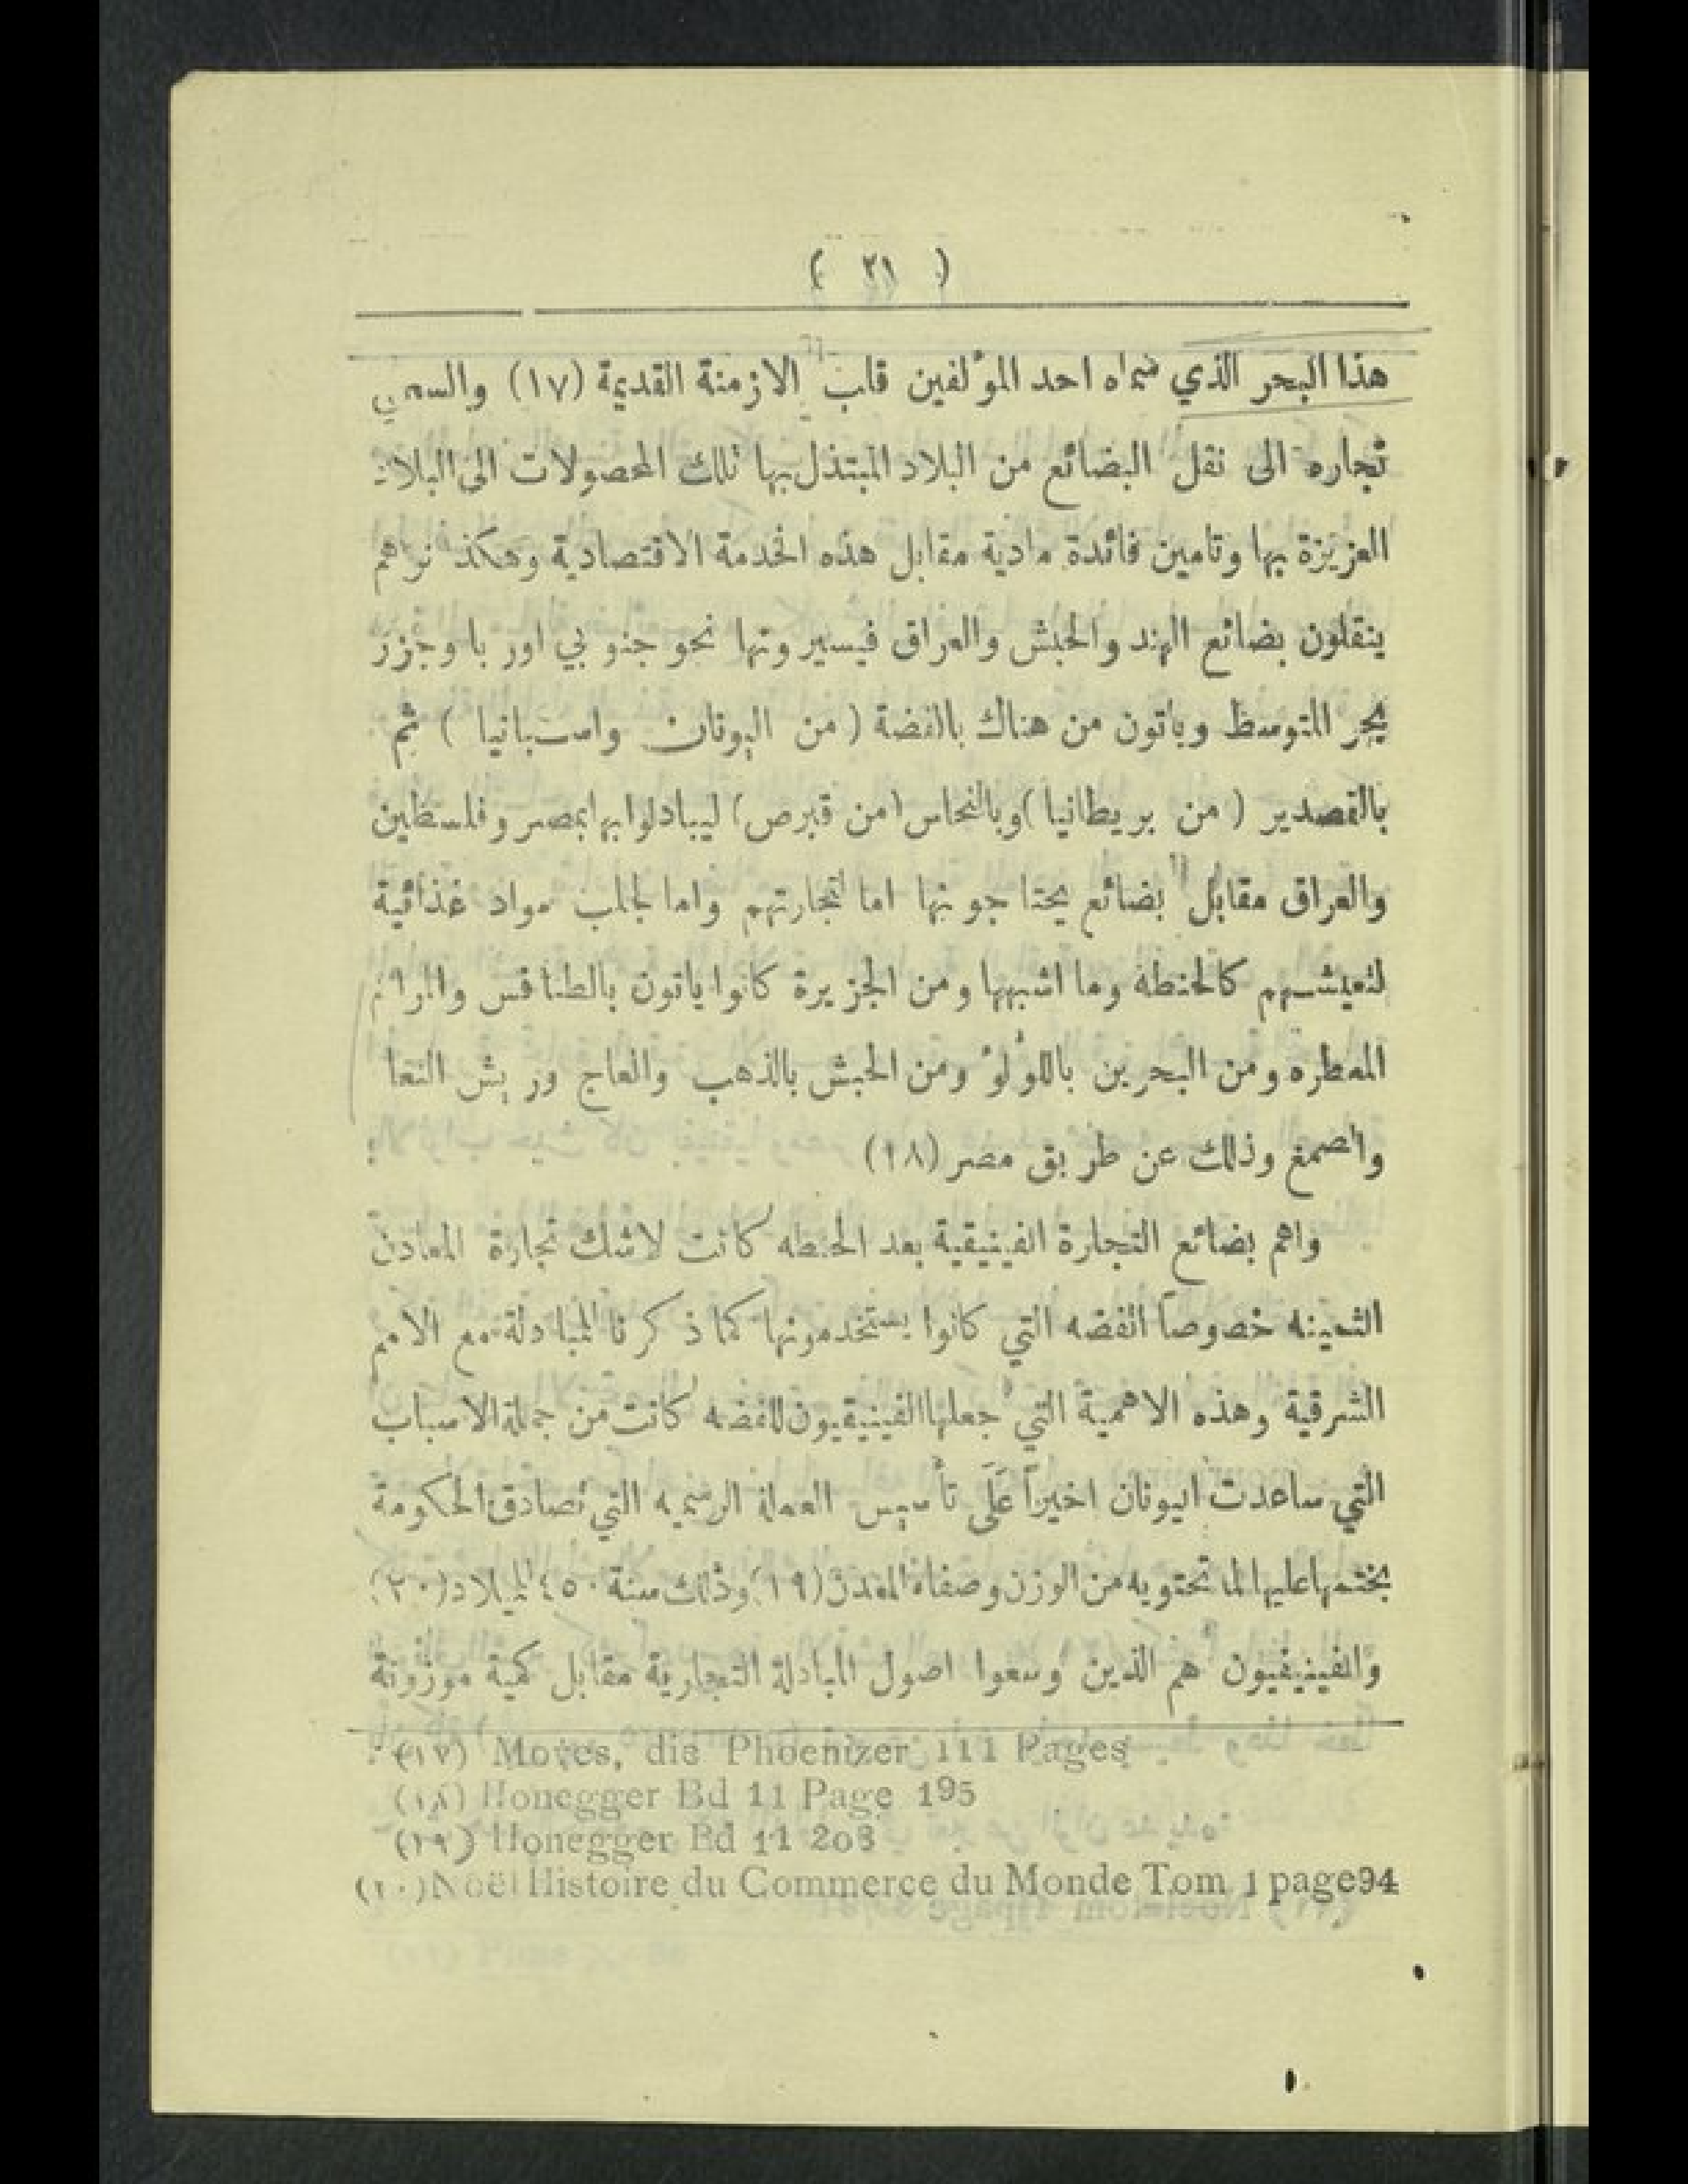 ( ٢١ )
هذا البحر الذي سماه احد المؤلفين قلب الازمنة القديمة (١٧) والسعي
تجاره الى نقل البضائع من البلاد المبتذل بها تلك المحصولات الى البلاد
العزيزة بها وتامين فائدة مادية مقابل هذه الخدمة الاقتصادية وهكذ نراهم
ينقلون بضائع الهند والحبش والعراق فيسيرونها نحو جنوبي اوربا وجزر
بحر المتوسط وياتون من هناك بالفضة ( من اليونان واسبانيا ) ثم
بالقصدير ( من بريطانيا ) وبالنحاس (من قبرص) ليبادلوا بها بمصر وفلسطين
والعراق مقابل بضائع يحتاجونها اما لتجارتهم واما لجلب مواد غذائية
لتعيشهم كالحنطه وما اشبهها ومن الجزيرة كانوا ياتون بالطنافس والمراهم
المعطره ومن البحرين باللؤلؤ ومن الحبش بالذهب والعاج وريش النعا
والصمغ وذلك عن طريق مصر (١٨)
واهم بضائع التجارة الفينيقية بعد الحنطه كانت لاشك تجارة المعادن
الثمينه خصوصاً الفضه التي كانوا يستخدمونها كما ذكرنا لمبادلة مع الامم
الشرقية وهذه الاهمية التي جعلها الفينيقيون للفضه كانت من جملة الاسباب
التي ساعدت اليونان اخيراً عَلَى تأسيس العملة الرسميه التي تصادق الحكومة
بختمها عليها لما تحتويه من الوزن وصفاء المعدن (١٩) وذلك سنة ٤٥٠ لميلاد (٢٠)
والفينيقيون هم الذين وسعوا اصول المبادلة التجارية مقابل كمية موزونة
(١٧) Moves, die Phoenizer 111 Pages
(١٨) Honegger Bd 11 Page 195
(١٩) Honegger Bd 11 208
(٢٠) Noël Histoire du Commerce du Monde Tom 1 page94